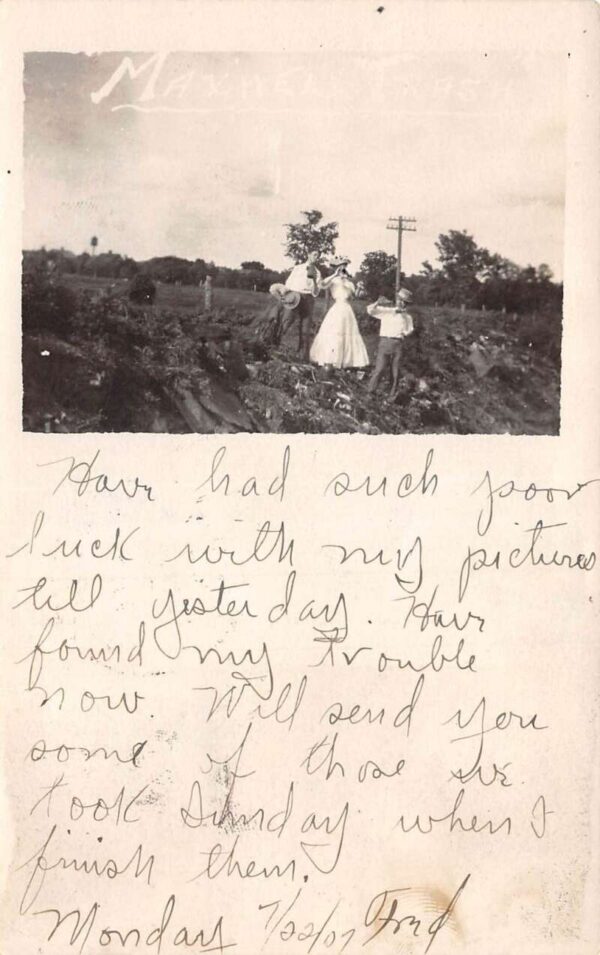 Have had such poor
luck with my pictures
till yesterday. Have
found my trouble
now. Will send you
some of those we
took Sunday when I
finish them.
Monday 7/22/07 Fred